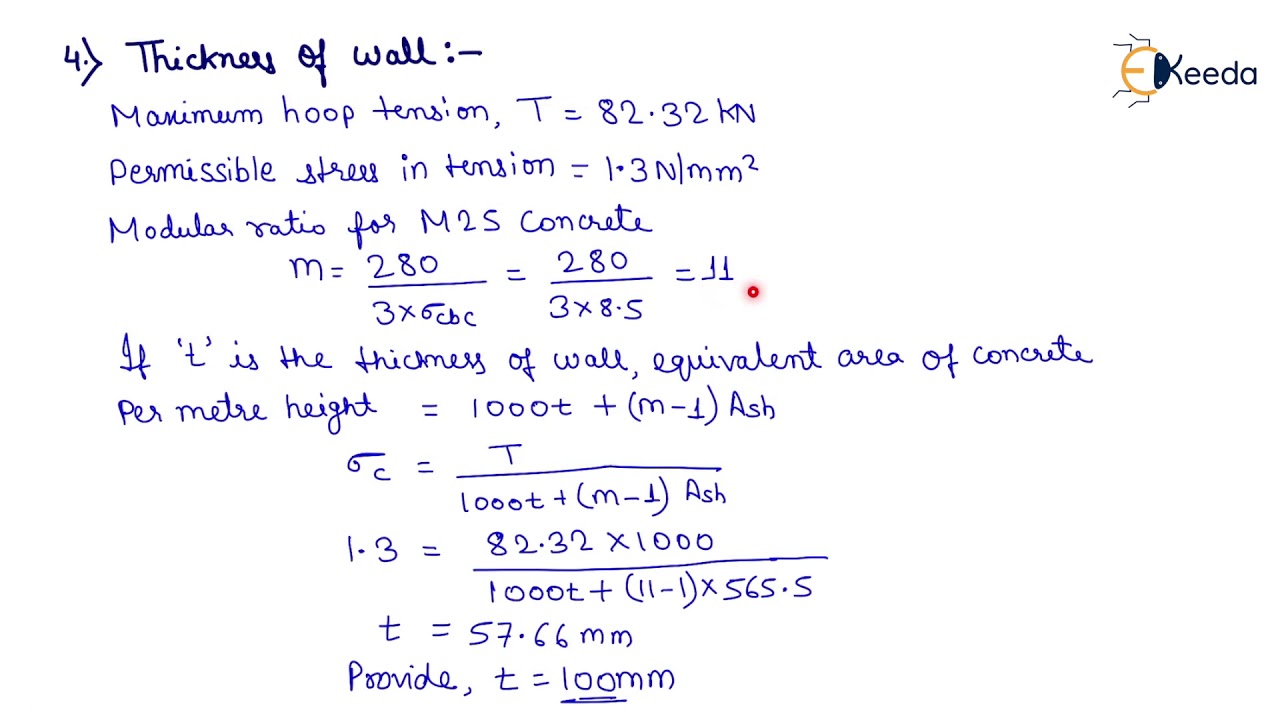 4.) Thickness of wall:-
EKeeda
Maximum hoop tension, T = 82.32 kN
Permissible stress in tension = 1.3 N/mm²
Modular ratio for M25 Concrete
m = 280 / 3×σcbc = 280 / 3×8.5 = 11
If 't' is the thickness of wall, equivalent area of concrete
Per metre height = 1000t + (m-1) Ash
σc = T / 1000t + (m-1) Ash
1.3 = 82.32 × 1000 / 1000t + (11-1)×565.5
t = 57.66 mm
Provide, t = 100mm